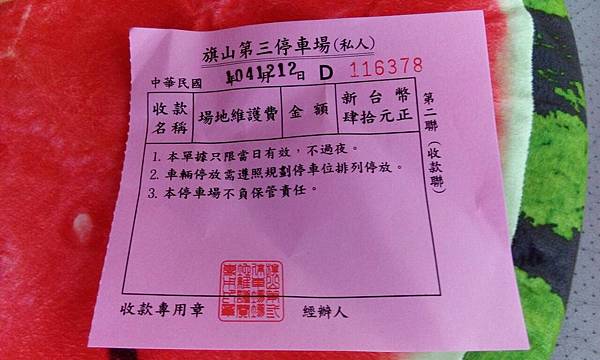 旗山第三停車場(私人)
中華民國 104年12月12日 D 116378
收款名稱 場地維護費 金額 新台幣肆拾元正
第二聯(收款聯)
1. 本單據只限當日有效，不過夜。
2. 車輛停放需遵照規劃停車位排列停放。
3. 本停車場不負保管責任。
收款專用章 經辦人